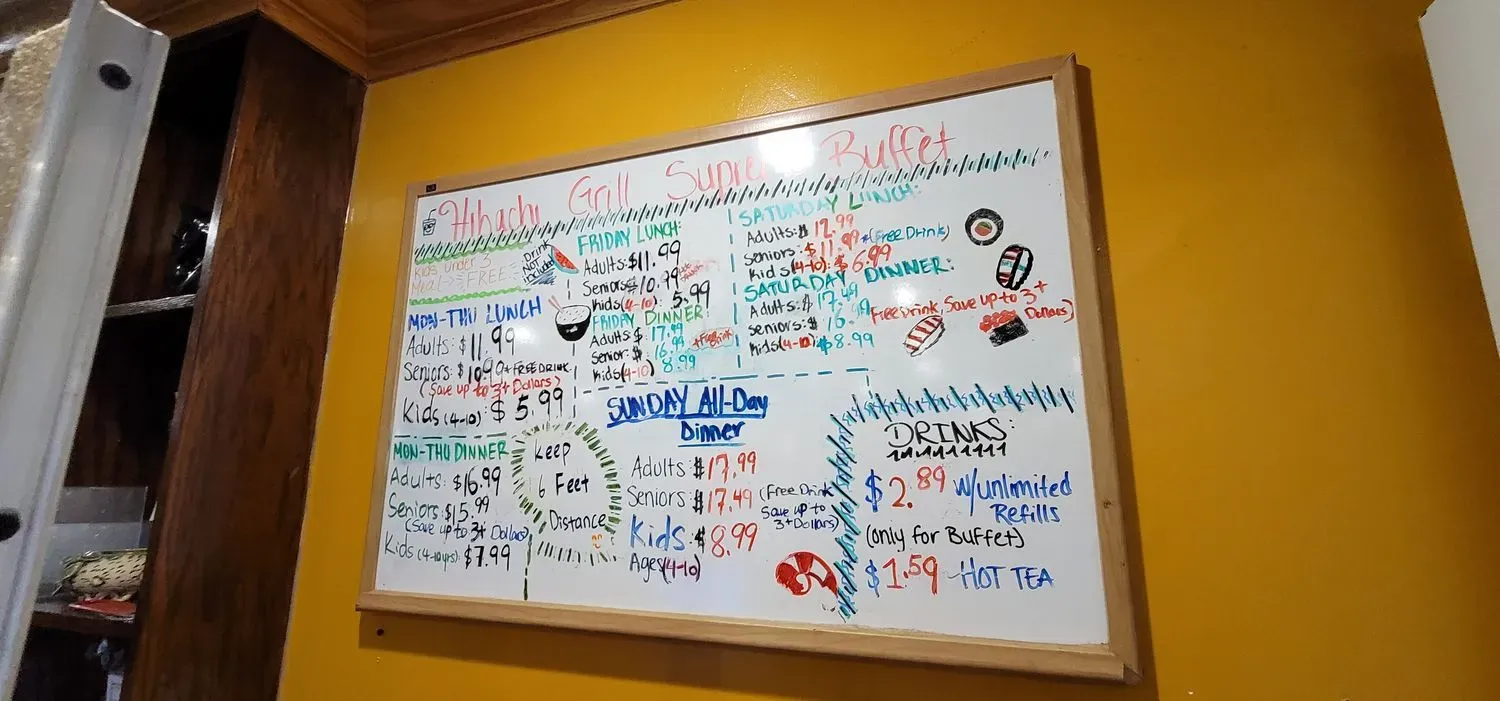 Hibachi Grill Supreme Buffet
Kids under 3
Meal -> FREE
Drink
NOT
included
MON-THU LUNCH
Adults: $11.99
Seniors: $10.99 + FREE DRINK
(Save up to 3+ Dollars)
Kids (4-10): $5.99
MON-THU DINNER
Adults: $16.99
Seniors: $15.99
(Save up to 3+ Dollars)
Kids (4-10yrs): $7.99
FRIDAY LUNCH:
Adults: $11.99
Seniors: $10.99
Kids (4-10): 5.99
FRIDAY DINNER:
Adults: $17.49
Senior: $16.99 +Free Drink
Kids (4-10) 8.99
SATURDAY LUNCH:
Adults: $12.99
Seniors: $11.99 +(Free Drink)
Kids (4-10): $6.99
SATURDAY DINNER:
Adults: $17.49
Seniors: $16.99
Free Drink, Save up to 3+
Dollars)
Kids (4-10) $8.99
keep
6 Feet
Distance
SUNDAY All-Day
Dinner
Adults $17.99
Seniors $17.49
(Free Drink
Save up to
3+ Dollars)
Kids $8.99
Ages (4-10)
DRINKS:
$2.89 w/unlimited
Refills
(only for Buffet)
$1.59 - HOT TEA